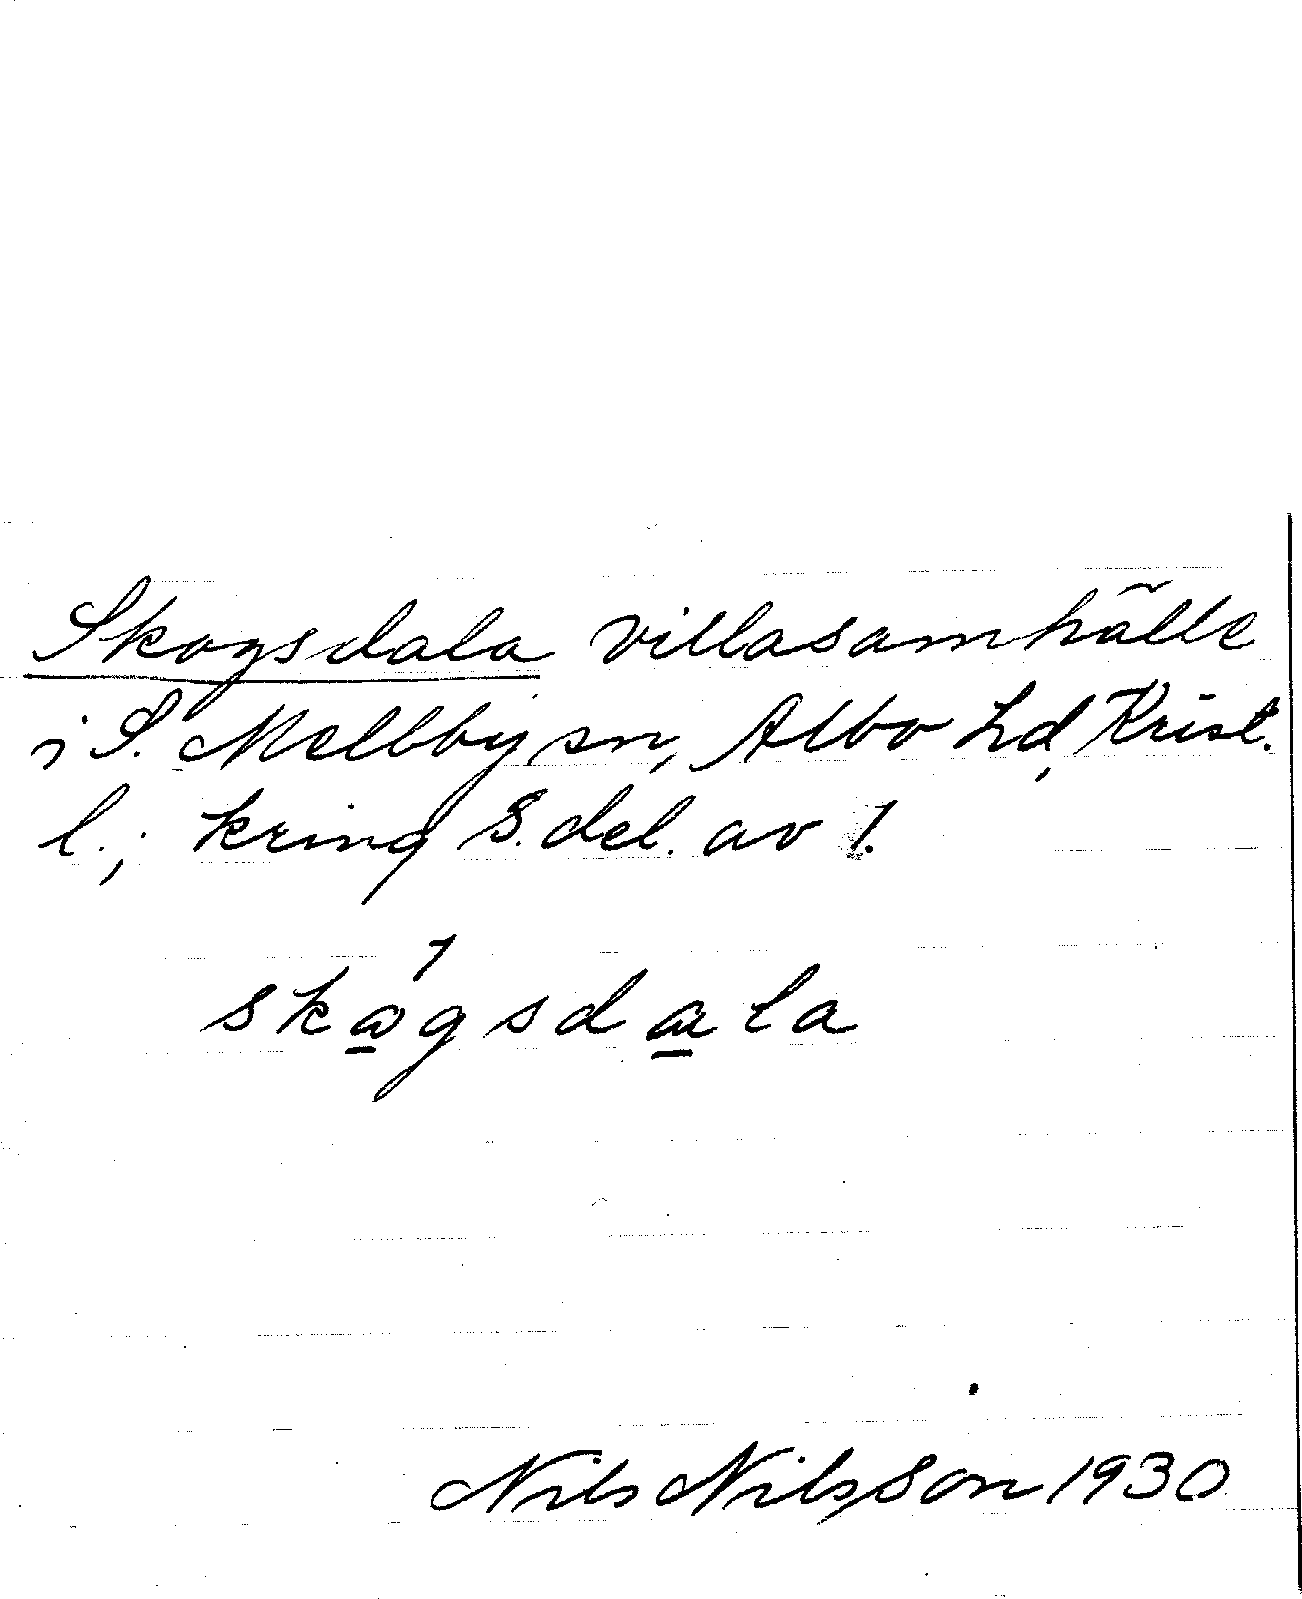 Skogsdala villasamhälle
i S. Mellby sn, Albo hd, Krist.
l.; kring S. del. av 1.
skogsdala
Nils Nilsson 1930